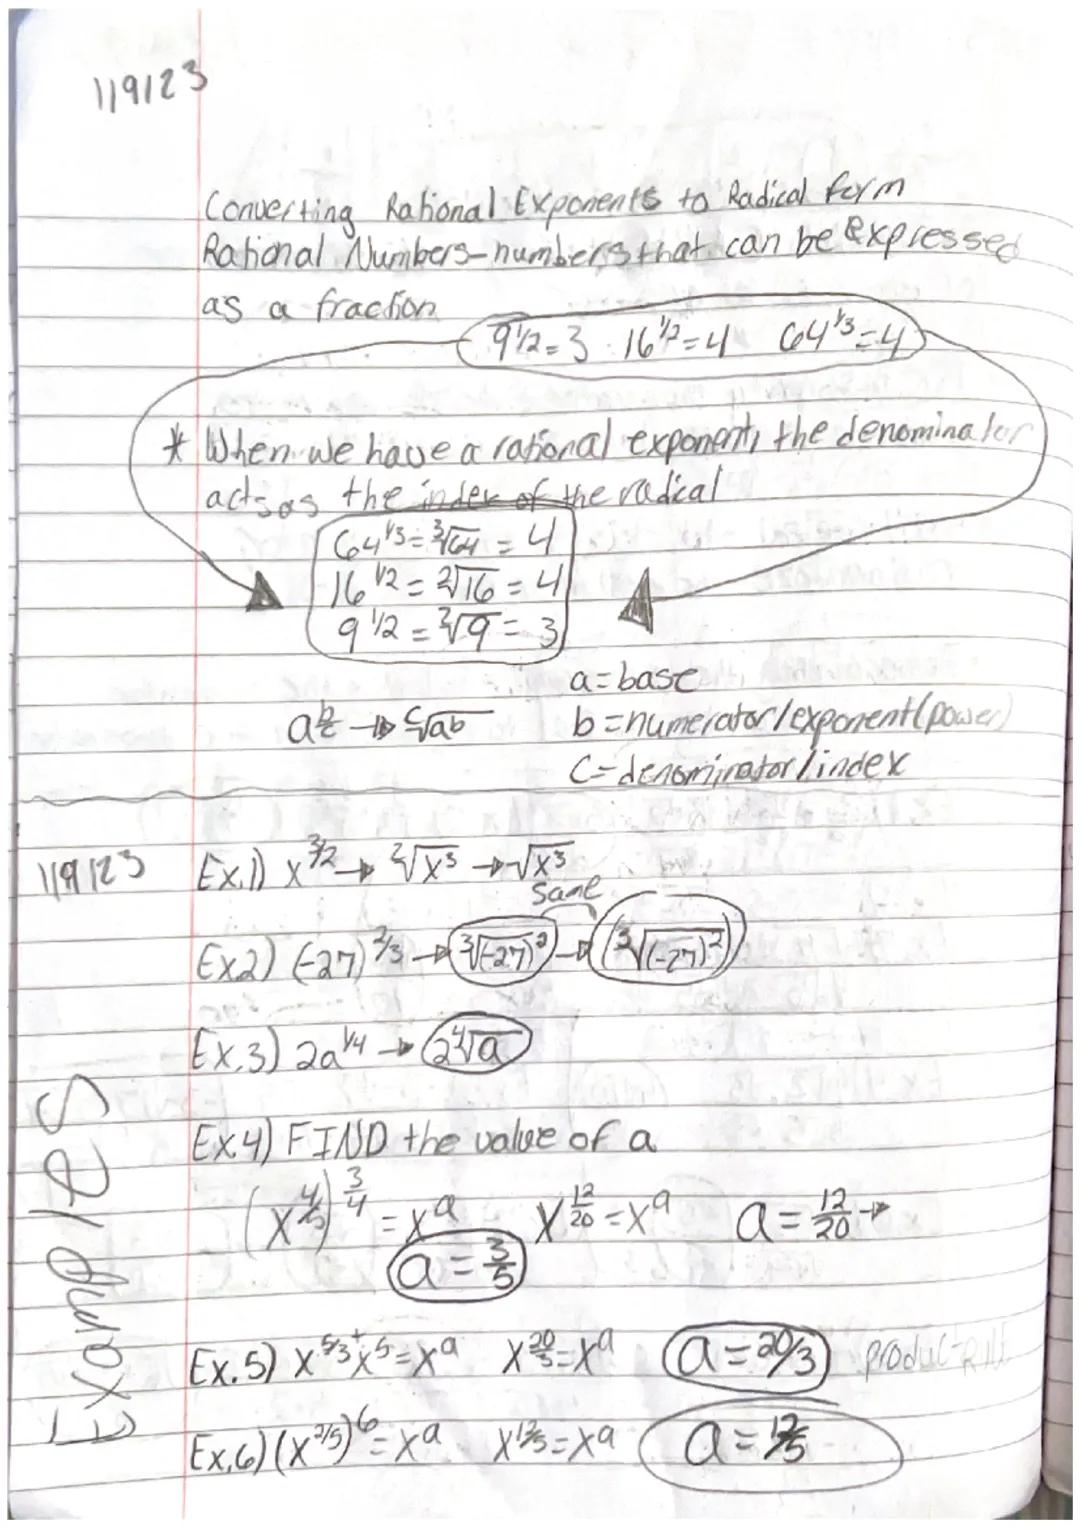 119123
Converting Rational Exponents to Radical form
Rational Numbers-numbers that can be expressed
as a fraction
9^1/2=3 16^1/2=4 64^1/3=4
* When we have a rational exponent, the denominator
acts as the index of the radical
64^1/3=∛64=4
16^1/2=²√16=4
9^1/2=²√9=3
a=base
a^b/c → ᶜ√ab b=numerator/exponent(power)
C=denominator/index
119123 Ex.1) x^3/2 → ²√x³ → √x³
Same
Ex2) (-27)^2/3 → ³√(-27)² → (³√(-27)²)
Ex.3) 2a^1/4 → 2⁴√a
Examples
Ex.4) FIND the value of a
(x^4/5)^3/4=x^a x^12/20=x^a a=12/20→
a=3/5
Ex.5) x^5/3+x^5=x^a x^20/3=x^a a=20/3 product Rule
Ex.6) (x^2/5)^6=x^a x^12/5=x^a a=12/5